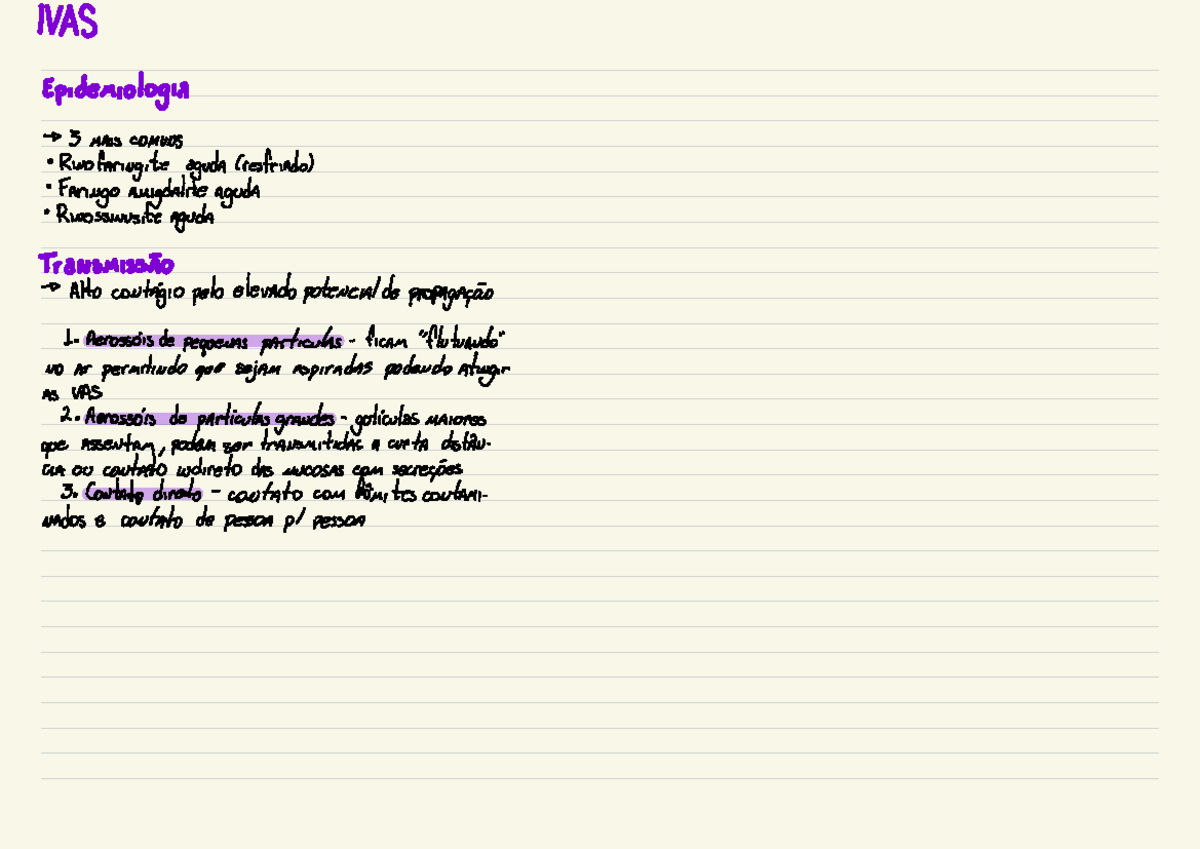 IVAS
Epidemiologia
→ 3 mais comuns
• Rinofaringite aguda (resfriado)
• Faringo amigdalite aguda
• Rinossinusite aguda
Transmissão
→ Alto contágio pelo elevado potencial de propagação
1. Aerossóis de pequenas partículas - ficam "flutuando"
no ar permitindo que sejam aspiradas podendo atingir
as VAS
2. Aerossóis de partículas grandes - gotículas maiores
que assentam, podem ser transmitidas a curta distân-
cia ou contato indireto das mucosas com secreções
3. Contato direto - contato com contami-
nados e contato de pessoa p/ pessoa